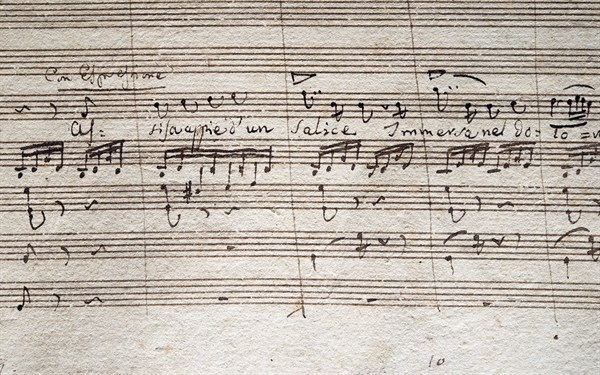 Con Espressione
As= sisa a piè d'un Salice Immersa nel do= lo=
10